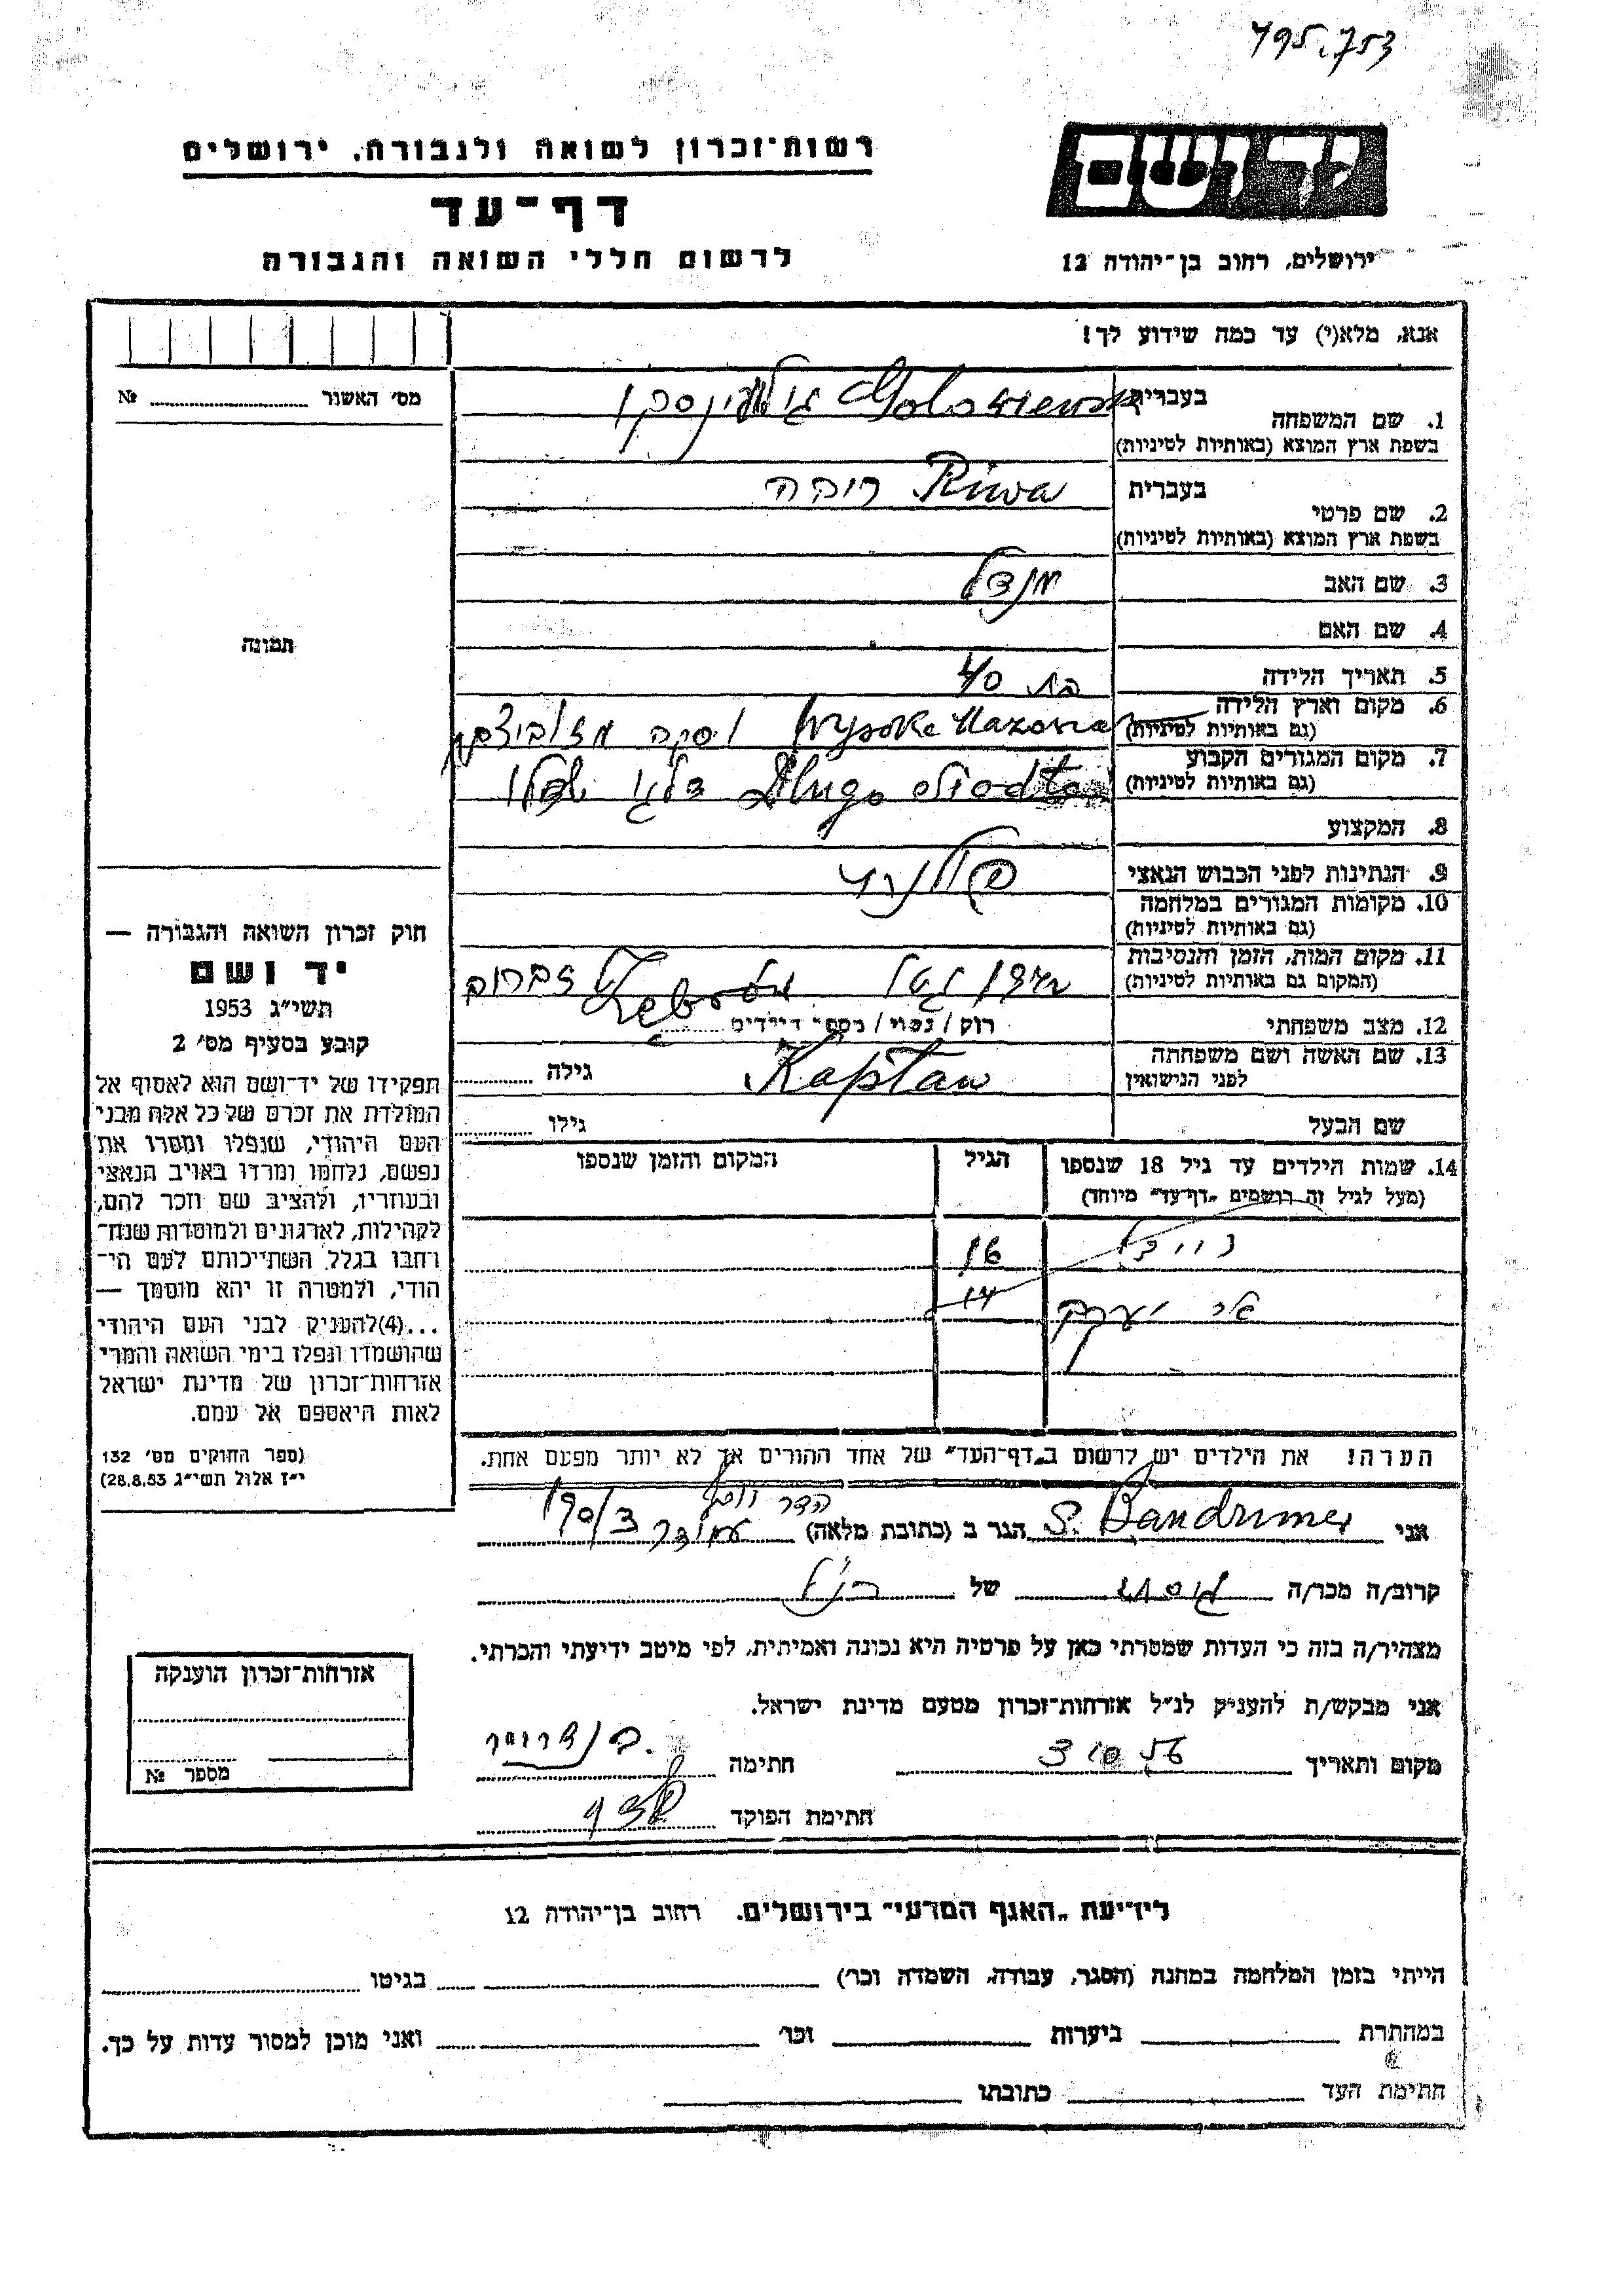 495.753
רשות־זכרון לשואה ולגבורה, ירושלים
יד ושם
דף־עד
לרשום חללי השואה והגבורה
ירושלים, רחוב בן־יהודה 12
אנא, מלא(י) עד כמה שידוע לך!
מס׳ האשור № 
בעברית
1. שם המשפחה
בשפת ארץ המוצא (באותיות לטיניות)
בעברית Riwa רוקה
2. שם פרטי
בשפת ארץ המוצא (באותיות לטיניות)
3. שם האב מנדל
4. שם האם
תמונה
5. תאריך הלידה בת 40
6. מקום וארץ הלידה Wysoke Mazowie
(גם באותיות לטיניות)
7. מקום המגורים הקבוע Dlugo
(גם באותיות לטיניות)
8. המקצוע
9. הנתינות לפני הכבוש הנאצי
10. מקומות המגורים במלחמה
(גם באותיות לטיניות)
11. מקום המות, הזמן והנסיבות 1942
(המקום גם באותיות לטיניות)
12. מצב משפחתי רוק / נשוי / מספר הילדים
13. שם האשה ושם משפחתה Kaplan גילה
לפני הנישואין
שם הבעל גילו
14. שמות הילדים עד גיל 18 שנספו הגיל המקום והזמן שנספו
(מעל לגיל זה רושמים „דף־עד״ מיוחד)
16
14
הערה! את הילדים יש לרשום ב„דף־העד״ של אחד ההורים אך לא יותר מפעם אחת.
חוק זכרון השואה והגבורה —
יד ושם
תשי״ג 1953
קובע בסעיף מס׳ 2
תפקידו של יד־ושם הוא לאסוף אל
המולדת את זכרם של כל אלה מבני
העם היהודי, שנפלו ומסרו את
נפשם, נלחמו ומרדו באויב הנאצי
ובעוזריו, ולהציב שם וזכר להם,
לקהילות, לארגונים ולמוסדות שנח־
רחבו בגלל השתייכותם לעם הי־
הודי, ולמטרה זו יהא מוסמך —
...(4)להעניק לבני העם היהודי
שהושמדו ונפלו בימי השואה והמרי
אזרחות־זכרון של מדינת ישראל
לאות היאספם אל עמם.
(ספר החוקים מס׳ 132
י״ז אלול תשי״ג 28.8.53)
אני S. Bandrimer הגר ב (כתובת מלאה)
קרוב/ה מכר/ה של הנ״ל
מצהיר/ה בזה כי העדות שמסרתי כאן על פרטיה היא נכונה ואמיתית, לפי מיטב ידיעתי והכרתי.
אני מבקש/ת להעניק לנ״ל אזרחות־זכרון מטעם מדינת ישראל.
מקום ותאריך חתימה
חתימת הפוקד
אזרחות־זכרון הוענקה
מספר №
לידיעת „האגף המדעי״ בירושלים. רחוב בן־יהודה 12
הייתי בזמן המלחמה במחנה (הסגר, עבודה, השמדה וכר׳) בגיטו
במחתרת ביערות וכר׳ ואני מוכן למסור עדות על כך.
חתימת העד כתובתו